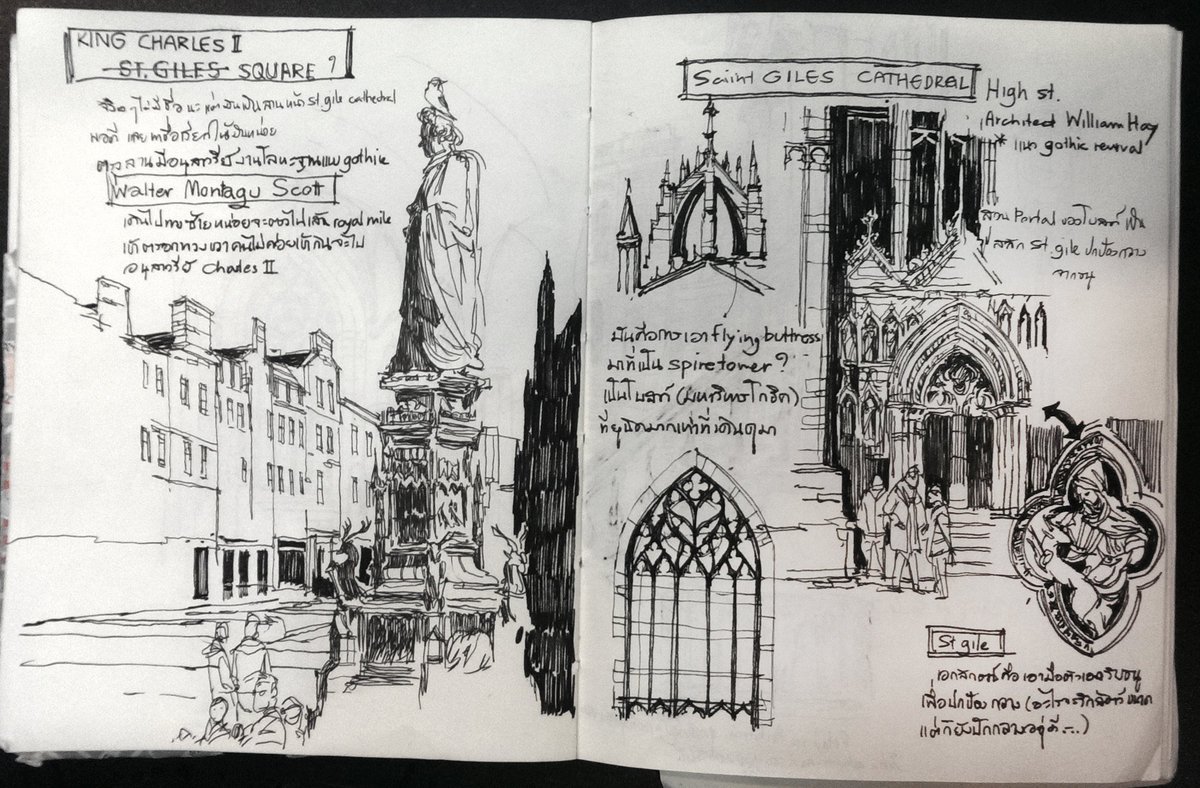 KING CHARLES II
ST. GILES SQUARE ?
จริงๆไม่มีชื่อนะ แต่มันเป็นลานหน้า St. gile cathedral
พอดี เลยหาชื่อเรียกให้มันหน่อย
ตรงลานมีอนุสาวรีย์งานโลหะฐานแบบ gothic
Walter Montagu Scott
เดินไปทางซ้ายหน่อยจะตรงไปเส้น royal mile
อนุสาวรีย์ Charles II
Saint GILES CATHEDRAL
High st.
Architect William Hay
* แนว gothic revival
ส่วน Portal ของโบสถ์ เป็น
สลัก St. gile ปกป้องกวาง
จากธนู
มันคือการเอา flying buttress
มาที่เป็น spire tower ?
เป็นโบสถ์ (มหาวิหารโกธิค)
ที่ยุบิดมากเท่าที่เคยดูมา
St gile
เอกลักษณ์ คือ เอามือตัวเองรับธนู
เพื่อปกป้อง กวาง